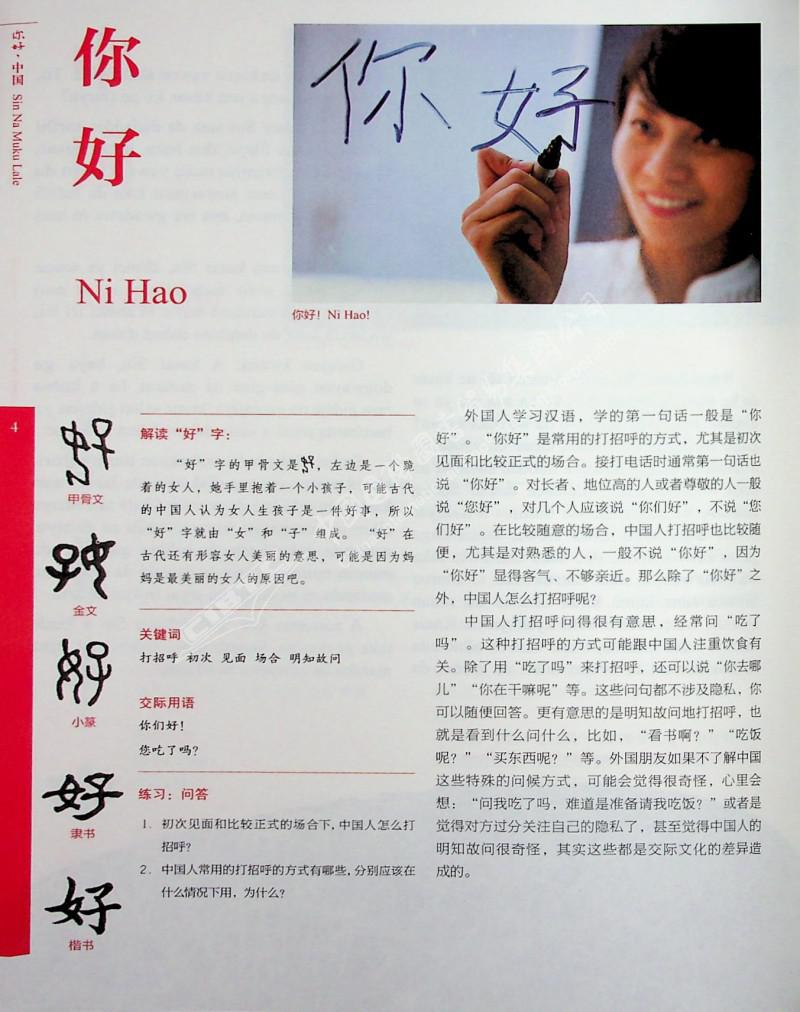 你好·中国 Sin Na Muku Lale
你
好
Ni Hao
你 好
你好！Ni Hao!
4
甲骨文
金文
小篆
隶书
楷书
解读“好”字：
“好”字的甲骨文是好，左边是一个跪
着的女人，她手里抱着一个小孩子，可能古代
的中国人认为女人生孩子是一件好事，所以
“好”字就由“女”和“子”组成。“好”在
古代还有形容女人美丽的意思，可能是因为妈
妈是最美丽的女人的原因吧。
关键词
打招呼 初次 见面 场合 明知故问
交际用语
你们好！
您吃了吗？
练习：问答
1. 初次见面和比较正式的场合下，中国人怎么打
招呼？
2. 中国人常用的打招呼的方式有哪些，分别应该在
什么情况下用，为什么？
外国人学习汉语，学的第一句话一般是“你
好”。“你好”是常用的打招呼的方式，尤其是初次
见面和比较正式的场合。接打电话时通常第一句话也
说“你好”。对长者、地位高的人或者尊敬的人一般
说“您好”，对几个人应该说“你们好”，不说“您
们好”。在比较随意的场合，中国人打招呼也比较随
便，尤其是对熟悉的人，一般不说“你好”，因为
“你好”显得客气、不够亲近。那么除了“你好”之
外，中国人怎么打招呼呢？
中国人打招呼问得很有意思，经常问“吃了
吗”。这种打招呼的方式可能跟中国人注重饮食有
关。除了用“吃了吗”来打招呼，还可以说“你去哪
儿”“你在干嘛呢”等。这些问句都不涉及隐私，你
可以随便回答。更有意思的是明知故问地打招呼，也
就是看到什么问什么，比如，“看书啊？”“吃饭
呢？”“买东西呢？”等。外国朋友如果不了解中国
这些特殊的问候方式，可能会觉得很奇怪，心里会
想：“问我吃了吗，难道是准备请我吃饭？”或者是
觉得对方过分关注自己的隐私了，甚至觉得中国人的
明知故问很奇怪，其实这些都是交际文化的差异造
成的。